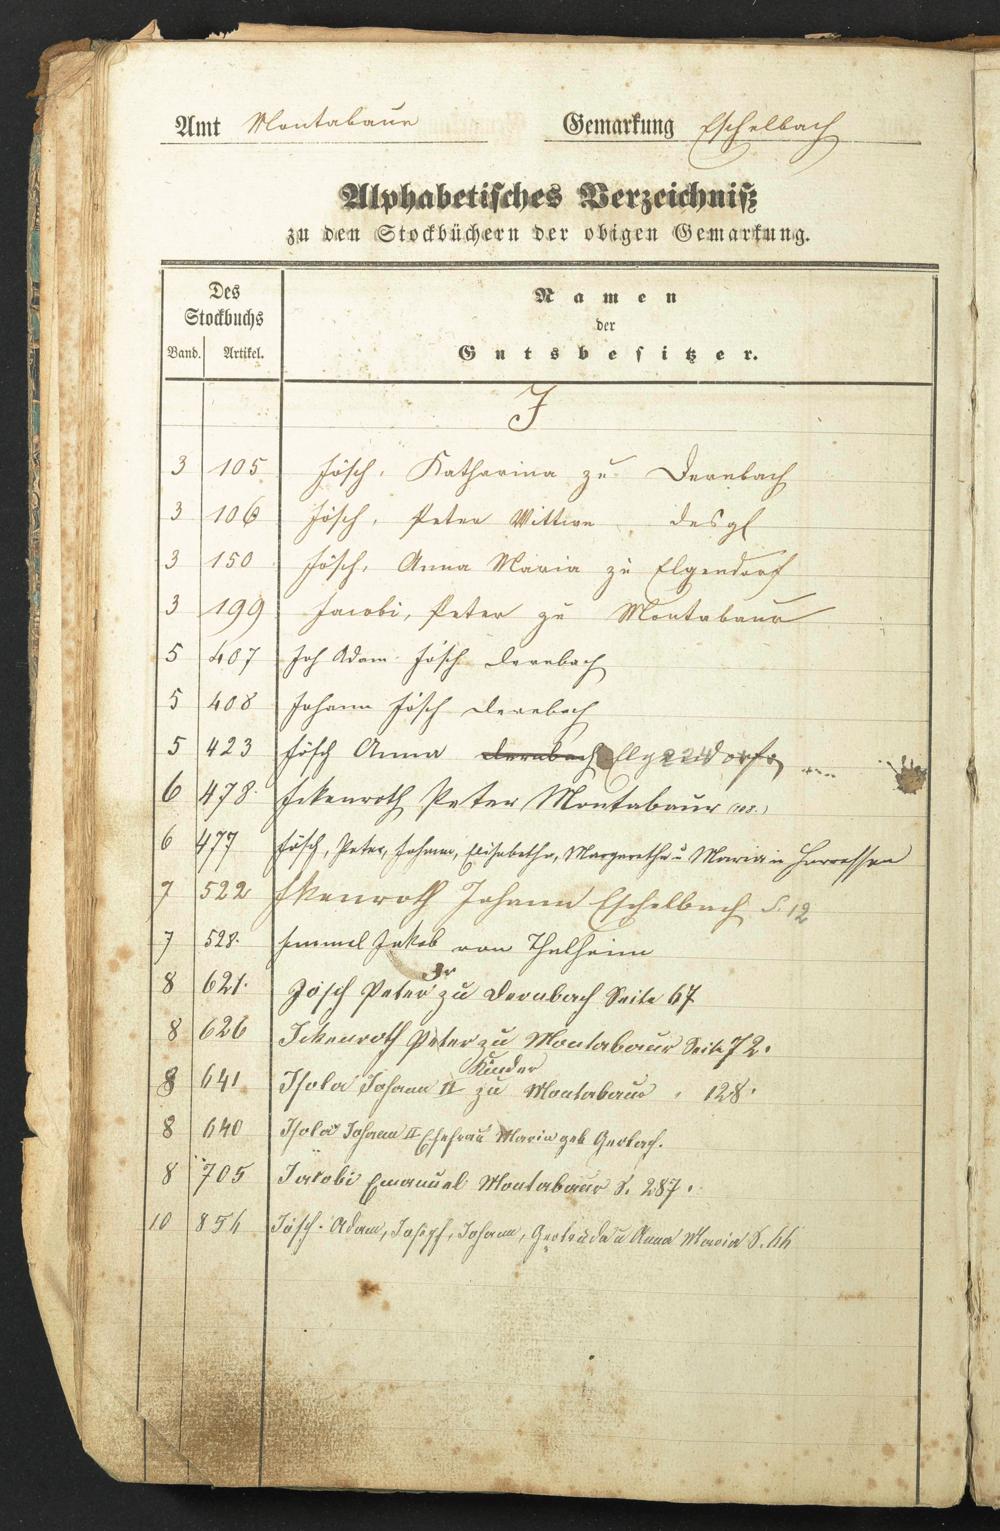 Amt Montabaur Gemarkung Eschelbach
Alphabetisches Verzeichniß
zu den Stockbüchern der obigen Gemarkung.
Des Stockbuchs
Namen
der
Gutsbesitzer.
Band. Artikel.
J
3 105 Jösch, Katharina zu Dernbach
3 106 Jösch, Peter Wittwe desgl
3 150 Jösch, Anna Maria zu Elgendorf
3 199 Jacobi, Peter zu Montabaur
5 407 Joh Adam Jösch Dernbach
5 408 Johann Jösch Dernbach
5 423 Jösch Anna Dernbach Elgendorf
6 478. Ickenroth Peter Montabaur
6 477 Jösch, Peter, Johann, Elisabetha, Margaretha u Maria in Horressen
7 522 Ikenroth Johann Eschelbach S. 12
7 528. Immel Jakob von Thalheim
8 621. Jösch Peter Ir zu Dernbach Seite 67
8 626 Ickenroth Peter zu Montabaur Seite 72.
Kinder
8 641 Isola Johann II zu Montabaur " 128.
8 640 Isola Johann II Ehefrau Maria geb Gerlach.
8 705 Jakobi Emanuel Montabaur S. 287.
10 854 Jösch. Adam, Joseph, Johann, Gertruda u Anna Maria S. 44